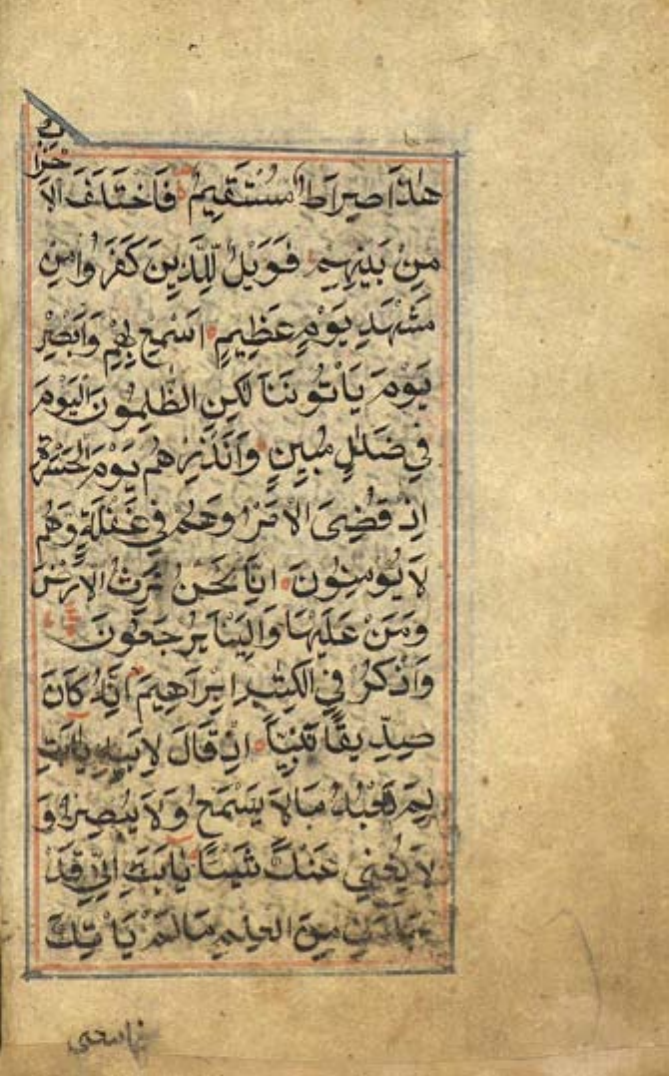 هٰذَا صِرَاطٌ مُسْتَقِيمٌ فَاخْتَلَفَ الْاَ
حْزَابُ
مِنْ بَيْنِهِمْ فَوَيْلٌ لِلَّذِينَ كَفَرُوا مِنْ
مَشْهَدِ يَوْمٍ عَظِيمٍ اَسْمِعْ بِهِمْ وَاَبْصِرْ
يَوْمَ يَأْتُونَنَا لٰكِنِ الظّٰلِمُونَ الْيَوْمَ
فِي ضَلٰلٍ مُبِينٍ وَاَنْذِرْهُمْ يَوْمَ الْحَسْرَةِ
اِذْ قُضِيَ الْاَمْرُ وَهُمْ فِي غَفْلَةٍ وَهُمْ
لَا يُؤْمِنُونَ اِنَّا نَحْنُ نَرِثُ الْاَرْضَ
وَمَنْ عَلَيْهَا وَاِلَيْنَا يُرْجَعُونَ
وَاذْكُرْ فِي الْكِتٰبِ اِبْرَاهِيمَ اِنَّهُ كَانَ
صِدِّيقًا نَبِيًّا اِذْ قَالَ لِاَبِيهِ يٰاَبَتِ
لِمَ تَعْبُدُ مَا لَا يَسْمَعُ وَلَا يُبْصِرُ وَ
لَا يُغْنِي عَنْكَ شَيْئًا يٰاَبَتِ اِنِّي قَدْ
جَاءَنِي مِنَ الْعِلْمِ مَا لَمْ يَأْتِكَ
فاتبعنى